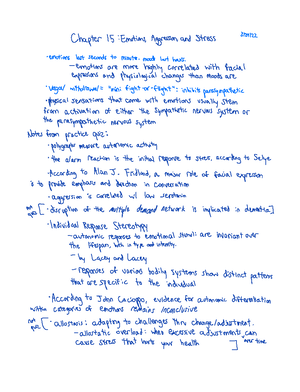 Chapter 15: Emotion, Aggression and Stress
· emotions last seconds to minutes. moods last hours.
– emotions are more highly correlated with facial
expressions and physiological changes than moods are
· vagal withdrawal = "mini fight-or-flight": inhibits parasympathetic
· physical sensations that come with emotions usually stem
from activation of either the sympathetic nervous system or
the parasympathetic nervous system
Notes from practice quiz:
· polygraph measure autonomic activity
· the alarm reaction is the initial response to stress, according to Selye
· According to Alan J. Fridlund, a major role of facial expression
is to provide emphasis and direction in conversation
· aggression is correlated w/ low serotonin
not quiz [· disruption of the multiple demand network is implicated in dementia]
· Individual Response Stereotypy
– autonomic responses to emotional stimuli are invariant over
the lifespan, both in type and intensity.
– by Lacey and Lacey
– responses of various bodily systems show distinct patterns
that are specific to the individual
· According to John Cacioppo, evidence for autonomic differentiation
within categories of emotions remains inconclusive
not quiz [· allostasis: adapting to challenges thru change/adjustment.
– allostatic overload: when excessive adjustments can
cause stress that hurts your health ] over time